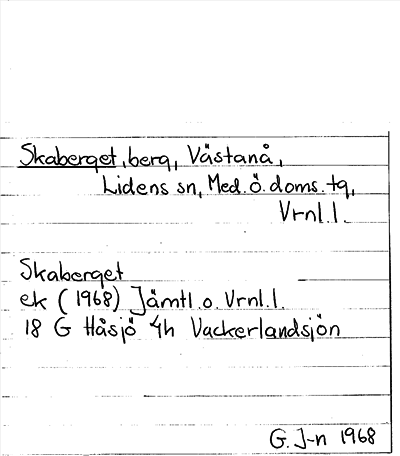 Skaberget, berg, Västanå,
Lidens sn, Med. ö. doms. tg,
Vrnl. l.
Skaberget
ek (1968) Jämtl. o. Vrnl. l.
18 G Håsjö 4h Vackerlandsjön
G. J-n 1968